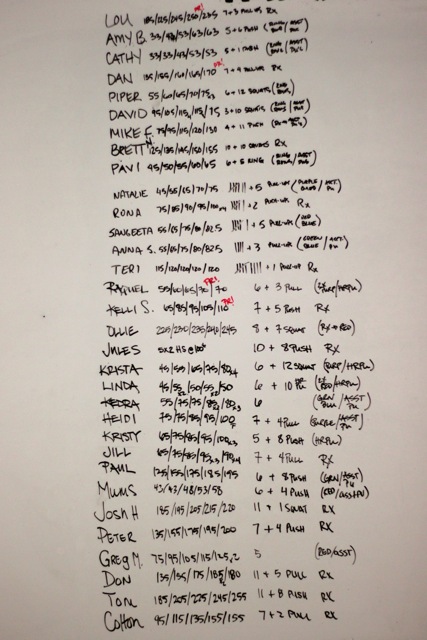 LOU 185/225/245/250/255 7+3 PULL-UPS RX
AMY B. 33/43/53/63/63 5+6 PUSH
CATHY 33/33/43/53/53 5+1
DAN 135/155/160/165/170 PR! 7+9 RX
PIPER 55/60/65/70/75 6+12 SQUATS
DAVID 95/105/115/115/ 3+10 SQUATS
MIKE F. 75/95/115/120/130 4+11 PUSH
BRETT N 125/135/145/150/155 10+10 SQUATS RX
PAVI 45/50/55/60/65 6+5 RING
NATALIE 45/55/65/70/75 +5 PULL-UPS (PURPLE
RONA 75/85/90/95/100 +2 PULL-UPS RX
SANGEETA 55/65/75/80/82.5 +5 PULL-UPS (RED BLUE)
ANNA S. 55/65/75/80/82.5 +3 PULL-UPS (GREEN BLUE
TERI 115/120/120/120/120 +1 PULL-UP RX
RACHEL 55/60/65/70 PR!/70 6+3 PULL
KELLI S. 65/85/95/105/110 PR! 7+5 PUSH RX
OLLIE 225/230/235/240/245 8+7 SQUAT (RX→RED)
JULES 5x2 HS @ 10+8 PUSH RX
KRISTA 45/55/65/75/80 6+12 SQUAT
LINDA 45/55/50/55/50 6+10
HEDRA 55/75/75/ 6 (GRN/ASST
HEIDI 75/75/85/95/100 7+4 PULL (PURPLE/ASST
KRISTY 65/75/85/95/100x3 5+8 PUSH (HRPU)
JILL 65/75/85/95 7+4 PULL RX
PAUL 125/155/175/185/195 6+8 PUSH (GRN/ASST
MUMS 43/43/48/53/58 6+4 PUSH
Josh H 185/195/205/215/220 11+1 SQUAT RX
PETER 135/155/175/195/200 7+4 PUSH RX
Greg M. 75/95/105/115/125 5 (RED/ASST)
DON 135/155/175/185/180 11+5 PULL RX
Tom 185/205/225/245/255 11+8 PUSH RX
Colton 95/115/135/155/155 7+2 PULL RX